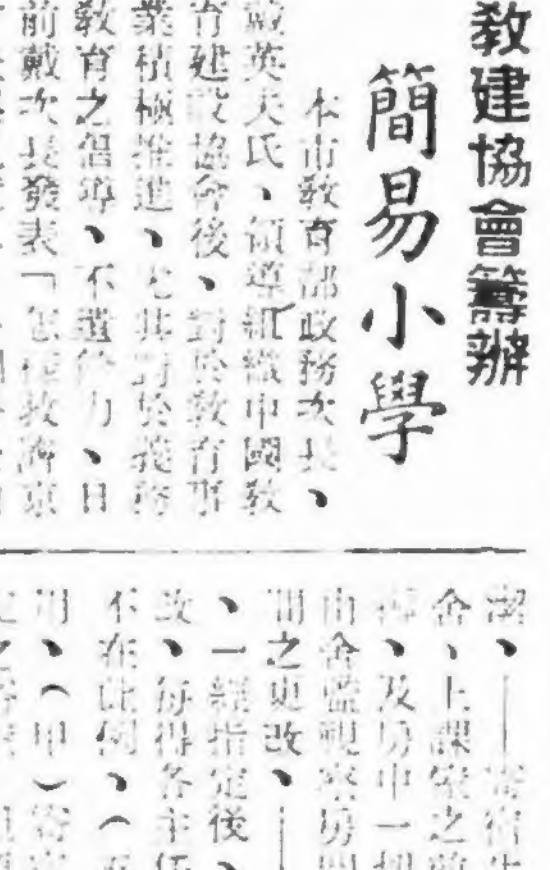 教建協會籌辦
簡易小學
本市教育部政務次長、
戴英夫氏、領導組織中國教
育建設協會後、對於教育事
業積極推進、尤其對於義務
教育之倡導、不遺餘力、日
前戴次長發表「怎樣救濟京
潔、——寄宿生
舍、上課室之
、及房中一切
由舍監視察房間
間之更改、——
、一經指定後、
改、每得各主任
不在此例、（五
用、（甲）寄宿